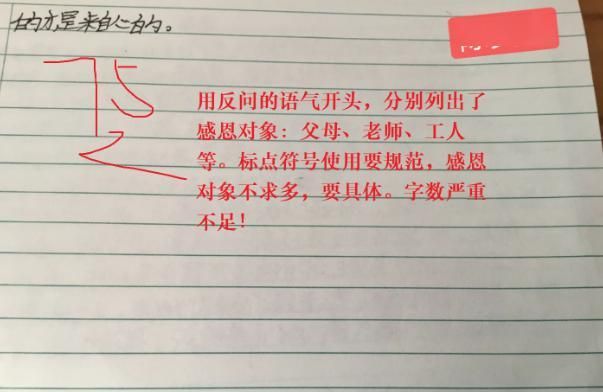 的亦是来自心的。
75
用反问的语气开头，分别列出了
感恩对象：父母、老师、工人
等。标点符号使用要规范，感恩
对象不求多，要具体。字数严重
不足！